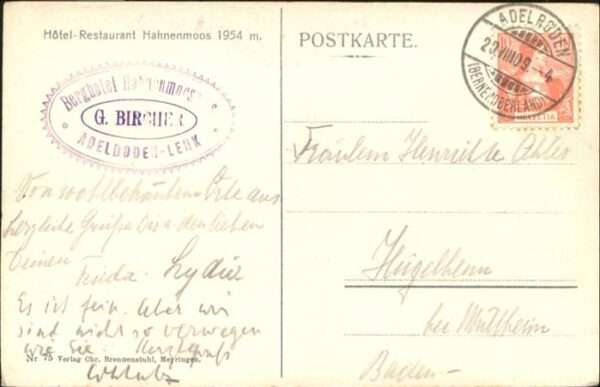 Hôtel-Restaurant Hahnenmoos 1954 m.
POSTKARTE.
ADELBODEN
23.VIII.09.-4
(BERNER OBERLAND)
HELVETIA
Berghotel Hahnenmoos
G. BIRCHER
ADELBODEN-LENK
Fräulein Henriette
Von wohlbekanntem Orte aus
herzliche Grüße Dir & den lieben
Deinen
Frida. Lydia
Es ist fein. Aber wir
sind nicht so verwegen
wie Sie. Herzl. Gruß
Hügelheim
bei Müllheim
Baden-
Nr 75 Verlag Chr. Brennenstuhl, Meyringen.